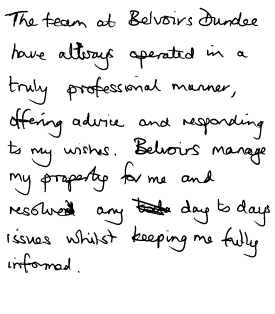 The team at Belvoirs Dundee
have always operated in a
truly professional manner,
offering advice and responding
to my wishes. Belvoirs manage
my property for me and
resolved any day to days
issues whilst keeping me fully
informed.